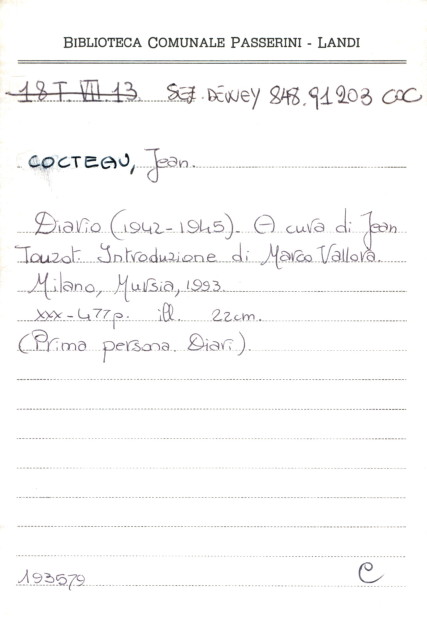 BIBLIOTECA COMUNALE PASSERINI - LANDI
18 T. VII. 13. SEZ. DEWEY 848.91203 COC
COCTEAU, Jean.
Diario (1942-1945). A cura di Jean
Touzot. Introduzione di Marco Vallora.
Milano, Mursia, 1993.
xxx-477p. ill. 22cm.
(Prima persona. Diari).
193579
C